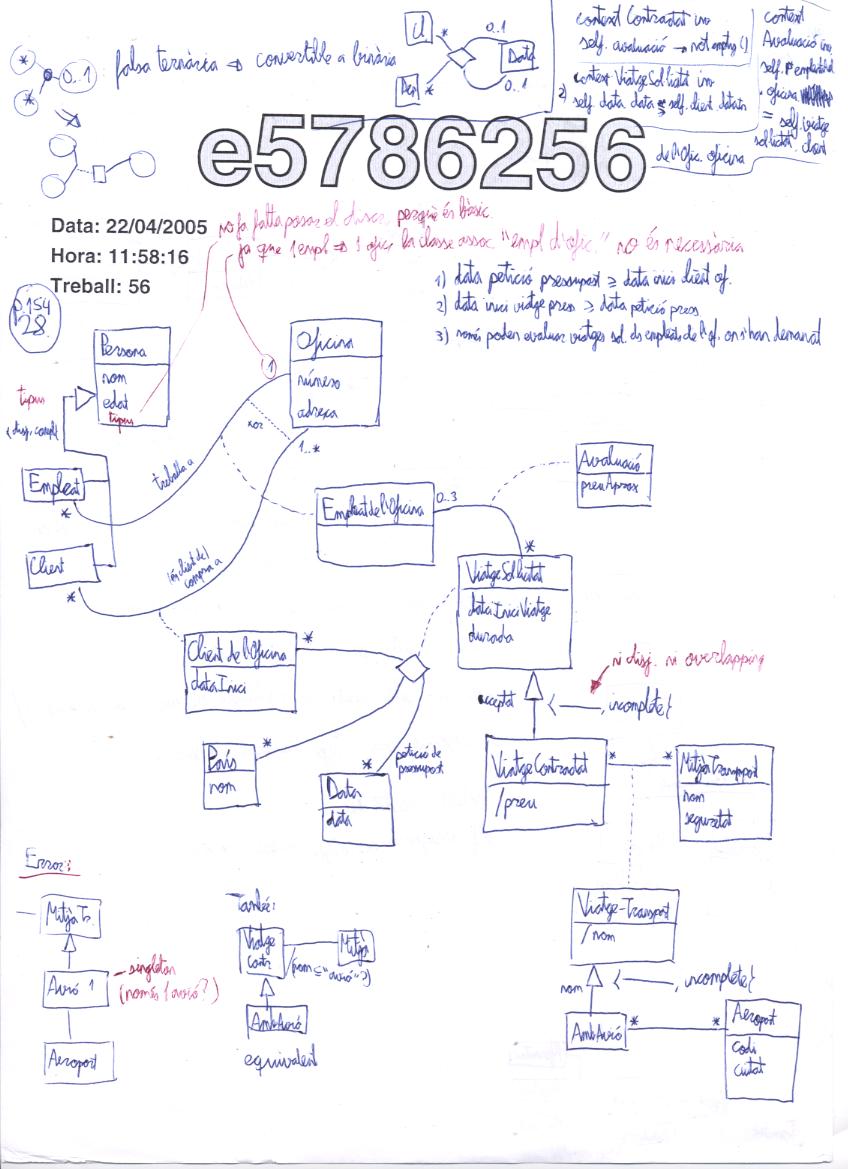 falsa ternària ⇒ convertible a binària
*
*
0..1
Cl
*
0..1
Data
0..1
*
context Contractat inv
self.avaluació → notempty()
2) context ViatgeSol·licitat inv
self.data.data
context
Avaluació inv
self.
oficina
= self.viatge
sol·licitat.client
de l'Ofic. oficina
e5786256
Data: 22/04/2005
Hora: 11:58:16
Treball: 56
no fa falta posar el discr. perquè és bàsic
ja que 1 empl ⇒ 1 ofic, la classe assoc. "empl d'ofic." no és necessària
1) data petició pressupost ≥ data inici client of.
2) data inici viatge press ≥ data petició press
3) només poden evaluar viatges sol. els empleats de l'of. on s'han demanat
p.154
28
Persona
nom
edat
tipus
Oficina
número
adreça
1
xor
1..*
tipus
{disj, compl}
treballa a
Empleat
*
Client
*
(és client de)
compra a
Empleat de l'Oficina
0..3
Avaluació
preuAprox
*
ViatgeSol·licitat
dataIniciViatge
durada
Client de l'Oficina
dataInici
*
ni disj. ni overlapping
acceptat
{ , incomplete}
País
nom
*
Data
data
*
petició de
pressupost
ViatgeContractat
/preu
*
*
MitjàTranspport
nom
seguretat
Error:
Mitjà Tr.
Avió 1
singleton
(només 1 avió?)
Aeroport
També:
Viatge
Contr.
Mitjà
AmbAvió
equivalent
Viatge-Transport
/nom
nom
{ , incomplete}
AmbAvió
*
*
Aeroport
codi
ciutat